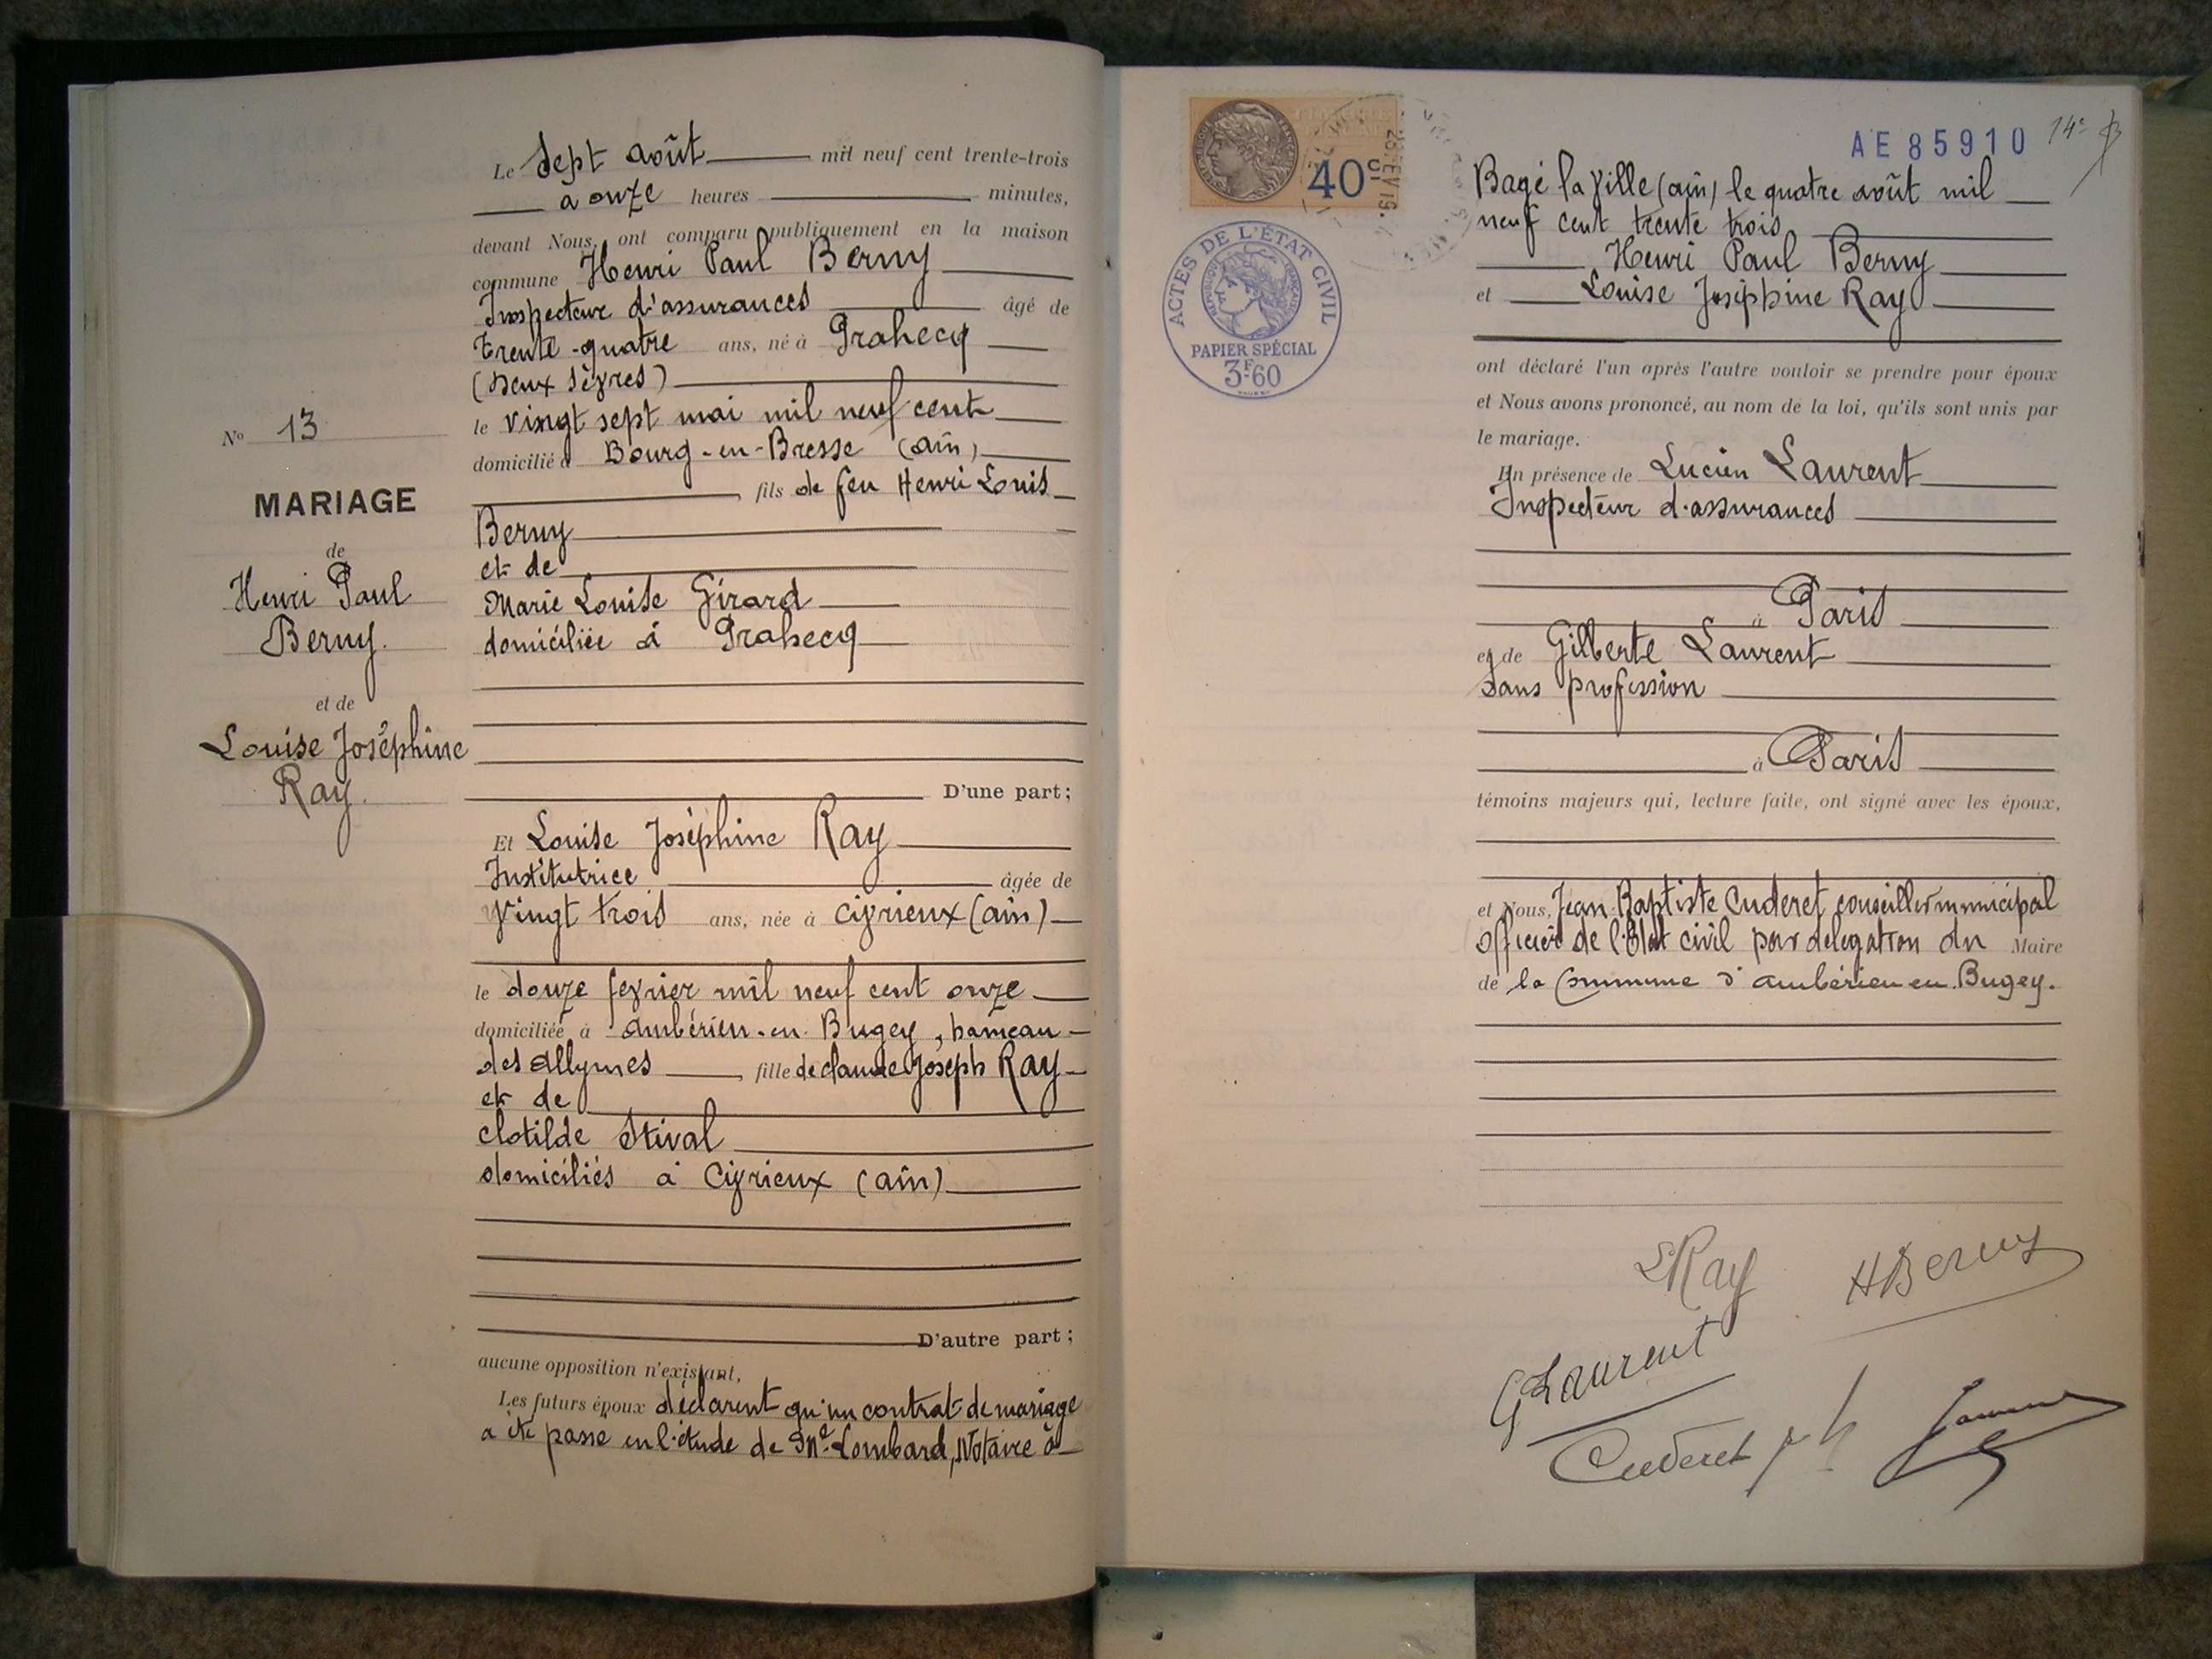 Le Sept août mil neuf cent trente-trois
à onze heures minutes,
devant Nous, ont comparu publiquement en la maison
commune Henri Paul Berny
Inspecteur d'assurances âgé de
trente-quatre ans, né à Prahecq
(Deux Sèvres)
le vingt sept mai mil neuf cent
domicilié à Bourg-en-Bresse (ain)
fils de feu Henri Louis
Berny
et de
Marie Louise Girard
domiciliée à Prahecq
D'une part;
No 13
MARIAGE
de
Henri Paul
Berny.
et de
Louise Joséphine
Ray.
Et Louise Joséphine Ray
Institutrice âgée de
vingt trois ans, née à Civrieux (ain)
le douze fevrier mil neuf cent onze
domiciliée à ambérieu-en-Bugey, hameau
des allymes fille de claude Joseph Ray
et de
clotilde Stival
domiciliés à Civrieux (ain)
D'autre part;
aucune opposition n'existant,
Les futurs époux déclarent qu'un contrat de mariage
a été passé en l'étude de Me Lombard, Notaire à
40c
ACTES DE L'ÉTAT CIVIL
RÉPUBLIQUE FRANÇAISE
PAPIER SPÉCIAL
3F60
AE 85910
14e
Bagé la ville (ain) le quatre août mil
neuf cent trente trois
Henri Paul Berny
et Louise Joséphine Ray
ont déclaré l'un après l'autre vouloir se prendre pour époux
et Nous avons prononcé, au nom de la loi, qu'ils sont unis par
le mariage.
En présence de Lucien Laurent
Inspecteur d'assurances
à Paris
et de Gilberte Laurent
sans profession
à Paris
témoins majeurs qui, lecture faite, ont signé avec les époux,
et Nous, Jean-Baptiste Cuderet conseiller municipal
officier de l'Etat civil par delegation du Maire
de la Commune d'ambérieu en Bugey.
LRay
HBerny
GLaurent
Cuderet